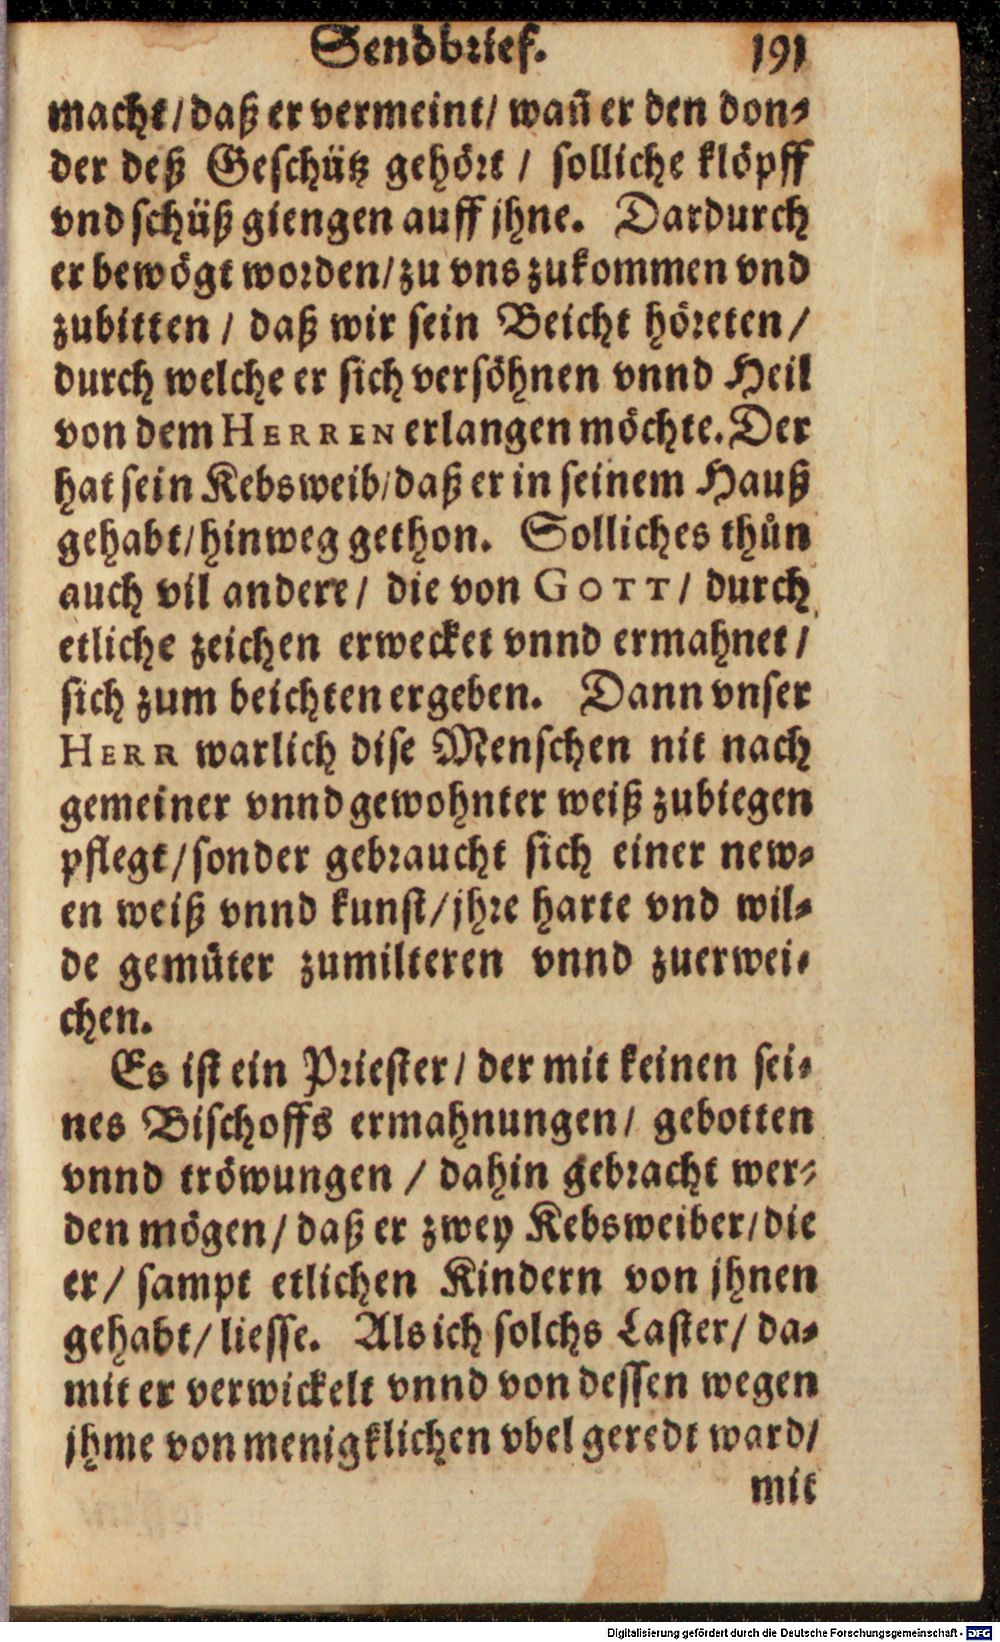 Sendbrief. 191
macht/daß er vermeint/ wañ er den don-
der deß Geschütz gehört / solliche klöpff
vnd schüß giengen auff jhne. Dardurch
er bewögt worden/zu vns zukommen vnd
zubitten / daß wir sein Beicht höreten /
durch welche er sich versöhnen vnnd Heil
von dem HERREN erlangen möchte. Der
hat sein Kebsweib/daß er in seinem Hauß
gehabt/hinweg gethon. Solliches thůn
auch vil andere/ die von GOTT / durch
etliche zeichen erwecket vnnd ermahnet /
sich zum beichten ergeben. Dann vnser
HERR warlich dise Menschen nit nach
gemeiner vnnd gewohnter weiß zubiegen
pflegt/sonder gebraucht sich einer new-
en weiß vnnd kunst/jhre harte vnd wil-
de gemüter zumilteren vnnd zuerwei-
chen.
Es ist ein Priester/ der mit keinen sei-
nes Bischoffs ermahnungen/ gebotten
vnnd tröwungen / dahin gebracht wer-
den mögen/ daß er zwey Kebsweiber/die
er/ sampt etlichen Kindern von jhnen
gehabt/ liesse. Als ich solchs Laster/ da-
mit er verwickelt vnnd von dessen wegen
jhme von menigklichen vbel geredt ward/
mit
Digitalisierung gefördert durch die Deutsche Forschungsgemeinschaft - DFG